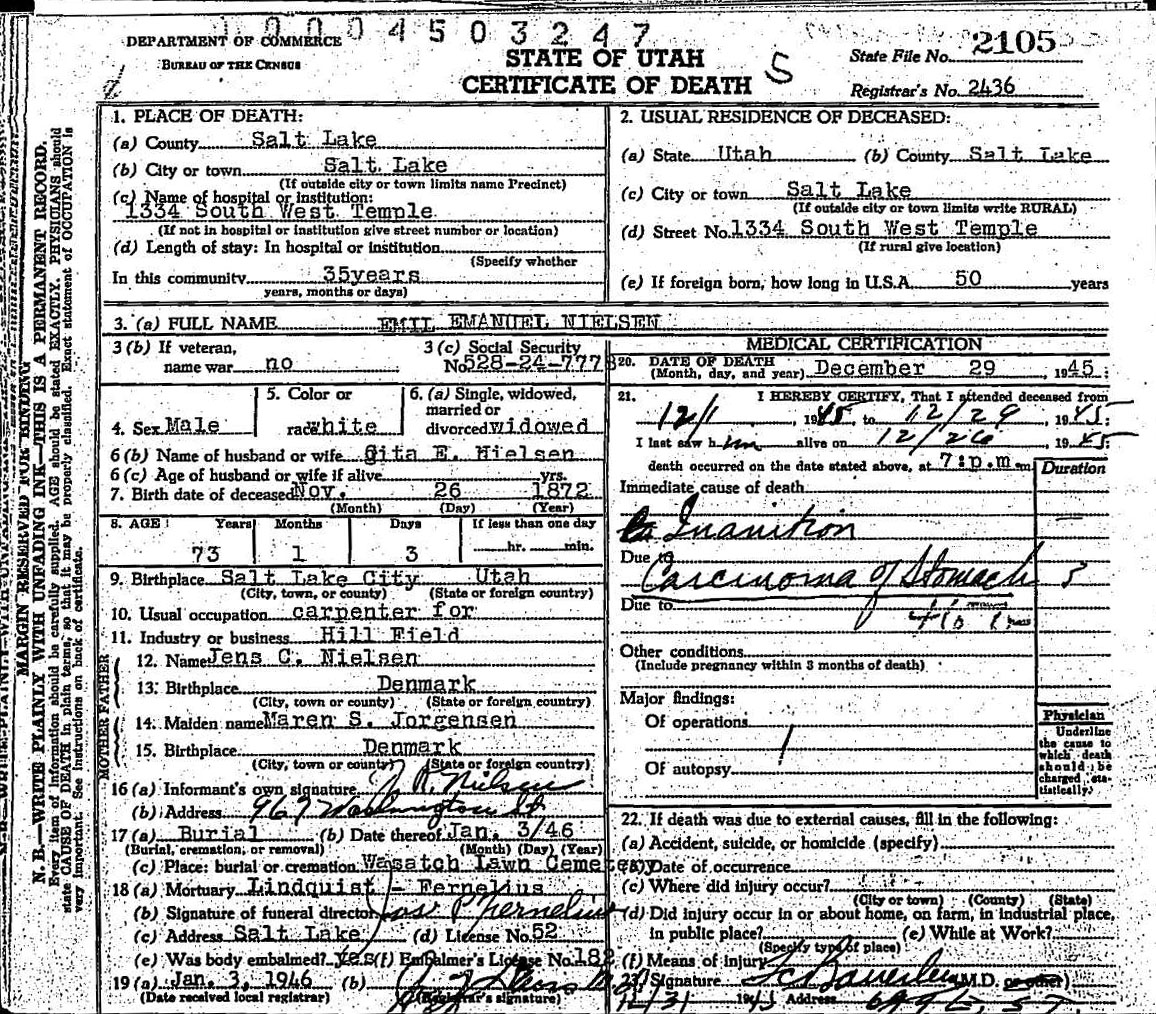 10004503247
DEPARTMENT OF COMMERCE
BUREAU OF THE CENSUS
STATE OF UTAH
CERTIFICATE OF DEATH
S
State File No. 2105
Registrar's No. 2436
MARGIN RESERVED FOR BINDING
N. B.—WRITE PLAINLY WITH UNFADING INK—THIS IS A PERMANENT RECORD.
Every item of information should be carefully supplied. AGE should be stated EXACTLY. PHYSICIANS should
state CAUSE OF DEATH in plain terms, so that it may be properly classified. Exact statement of OCCUPATION is
very important. See instructions on back of certificate.
1. PLACE OF DEATH:
(a) County Salt Lake
(b) City or town Salt Lake
(If outside city or town limits name Precinct)
(c) Name of hospital or institution:
1334 South West Temple
(If not in hospital or institution give street number or location)
(d) Length of stay: In hospital or institution
(Specify whether
In this community 35years
years, months or days)
2. USUAL RESIDENCE OF DECEASED:
(a) State Utah (b) County Salt Lake
(c) City or town Salt Lake
(If outside city or town limits write RURAL)
(d) Street No. 1334 South West Temple
(If rural give location)
(e) If foreign born, how long in U.S.A. 50 years
3. (a) FULL NAME EMIL EMANUEL NIELSEN
3 (b) If veteran, name war no
3 (c) Social Security No. 528-24-7778
4. Sex Male
5. Color or race white
6. (a) Single, widowed, married or divorced widowed
6 (b) Name of husband or wife Gita E. Nielsen
6 (c) Age of husband or wife if alive yrs.
7. Birth date of deceased Nov. 26 1872
(Month) (Day) (Year)
8. AGE: Years Months Days If less than one day
73 1 3 hr. min.
9. Birthplace Salt Lake City Utah
(City, town, or county) (State or foreign country)
10. Usual occupation carpenter for
11. Industry or business Hill Field
FATHER
12. Name Jens C. Nielsen
13. Birthplace Denmark
(City, town or county) (State or foreign country)
MOTHER
14. Maiden name Maren S. Jorgensen
15. Birthplace Denmark
(City, town or county) (State or foreign country)
16 (a) Informant's own signature Nielsen
(b) Address 967 Washington St
17 (a) Burial (b) Date thereof Jan. 3/46
(Burial, cremation, or removal) (Month) (Day) (Year)
(c) Place: burial or cremation Wasatch Lawn Cemetery
18 (a) Mortuary Lindquist - Fernelius
(b) Signature of funeral director Jos P Fernelius
(c) Address Salt Lake (d) License No. 52
(e) Was body embalmed? yes (f) Embalmer's License No. 182
19 (a) Jan. 3, 1946 (b)
(Date received local registrar) (Registrar's signature)
MEDICAL CERTIFICATION
20. DATE OF DEATH
(Month, day, and year) December 29, 1945
21. I HEREBY CERTIFY, That I attended deceased from
12/1, 1945 to 12/29, 1945
I last saw him alive on 12/26 1945
death occurred on the date stated above, at 7:p.m. m
Duration
Immediate cause of death
Inanition
Due to
Carcinoma of Stomach
Due to
Other conditions
(Include pregnancy within 3 months of death)
Major findings:
Of operations
Of autopsy
Physician
Underline
the cause to
which death
should be
charged sta-
tistically.
22. If death was due to external causes, fill in the following:
(a) Accident, suicide, or homicide (specify)
(b) Date of occurrence
(c) Where did injury occur?
(City or town) (County) (State)
(d) Did injury occur in or about home, on farm, in industrial place,
in public place? (e) While at Work?
(Specify type of place)
(f) Means of injury
23. Signature M.D. or other)
12/31 1945 Address